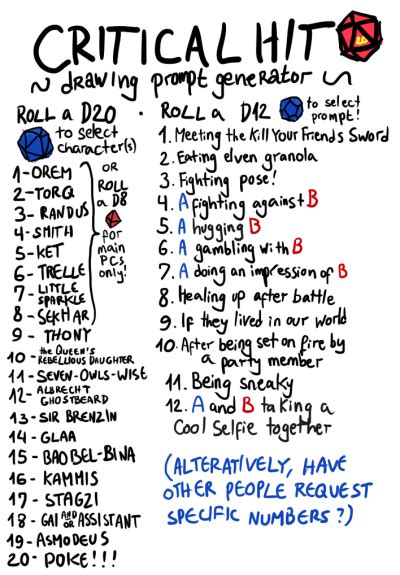 CRITICAL HIT
~ drawing prompt generator ~
ROLL a D20 · ROLL a D12 to select prompt!
to select character(s)
OR ROLL a D8 for main PCs, only!
1-OREM
2-TORQ
3-RANDUS
4-SMITH
5-KET
6-TRELLE
7-LITTLE SPARKLE
8-SEKHAR
9-THONY
10-the QUEEN'S REBELLIOUS DAUGHTER
11-SEVEN-OWLS-WISE
12-ALBRECHT GHOSTBEARD
13-SIR BRENZIN
14-GLAA
15-BAOBEL-BINA
16-KAMMIS
17-STAGZI
18-GAI AND/OR ASSISTANT
19-ASMODEUS
20-POKE!!!
1. Meeting the Kill Your Friends Sword
2. Eating elven granola
3. Fighting pose!
4. A fighting against B
5. A hugging B
6. A gambling with B
7. A doing an impression of B
8. Healing up after battle
9. If they lived in our world
10. After being set on fire by
a party member
11. Being sneaky
12. A and B taking a
Cool Selfie together
(ALTERATIVELY, HAVE
OTHER PEOPLE REQUEST
SPECIFIC NUMBERS?)